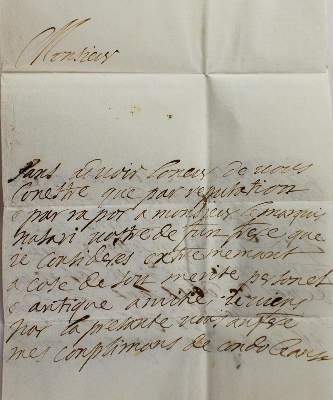 Monsieur
sans avoir loneur de vous
conestre que par reputation
e par rapor a monsieur le marquis
natari vostre de fun frere que
ie consideres extrememant
a cose de son merite personel
e antique amitié ie viens
par la presante vous anfere
mes complimans de condoleance